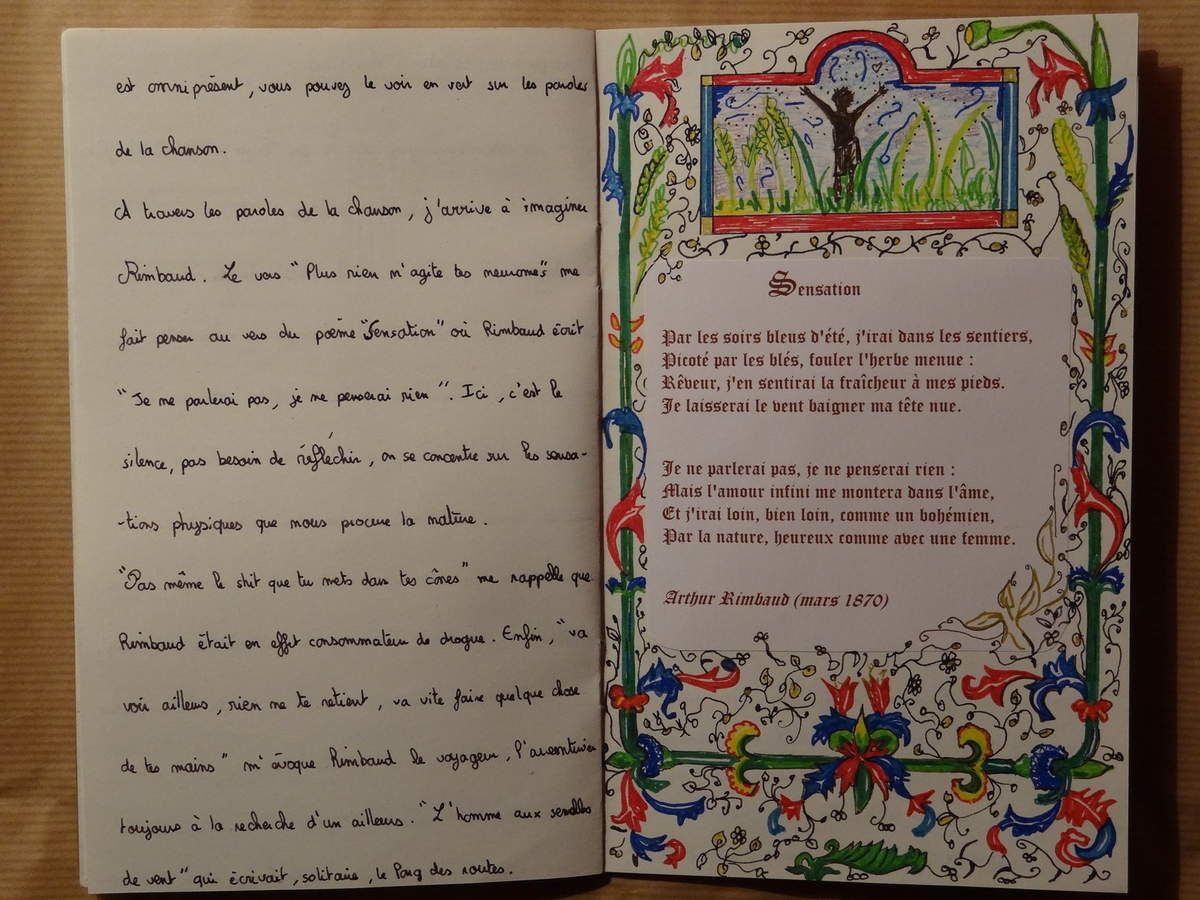 est omniprésent, vous pouvez le voir en vert sur les paroles
de la chanson.
A travers les paroles de la chanson, j'arrive à imaginer
Rimbaud. Le vers "Plus rien m'agite tes neurones" me
fait penser au vers du poème "Sensation" où Rimbaud écrit
"Je ne parlerai pas, je ne penserai rien". Ici, c'est le
silence, pas besoin de réfléchir, on se concentre sur les sensa-
-tions physiques que nous procure la nature.
"Pas même le shit que tu mets dans tes cônes" me rappelle que
Rimbaud était en effet consommateur de drogue. Enfin, "va
voir ailleurs, rien ne te retient, va vite faire quelque chose
de tes mains" m'évoque Rimbaud le voyageur, l'aventurier
toujours à la recherche d'un ailleurs. "L'homme aux semelles
de vent" qui écrivait, solitaire, le long des routes.
Sensation
Par les soirs bleus d'été, j'irai dans les sentiers,
Picoté par les blés, fouler l'herbe menue :
Rêveur, j'en sentirai la fraîcheur à mes pieds.
Je laisserai le vent baigner ma tête nue.
Je ne parlerai pas, je ne penserai rien :
Mais l'amour infini me montera dans l'âme,
Et j'irai loin, bien loin, comme un bohémien,
Par la nature, heureux comme avec une femme.
Arthur Rimbaud (mars 1870)